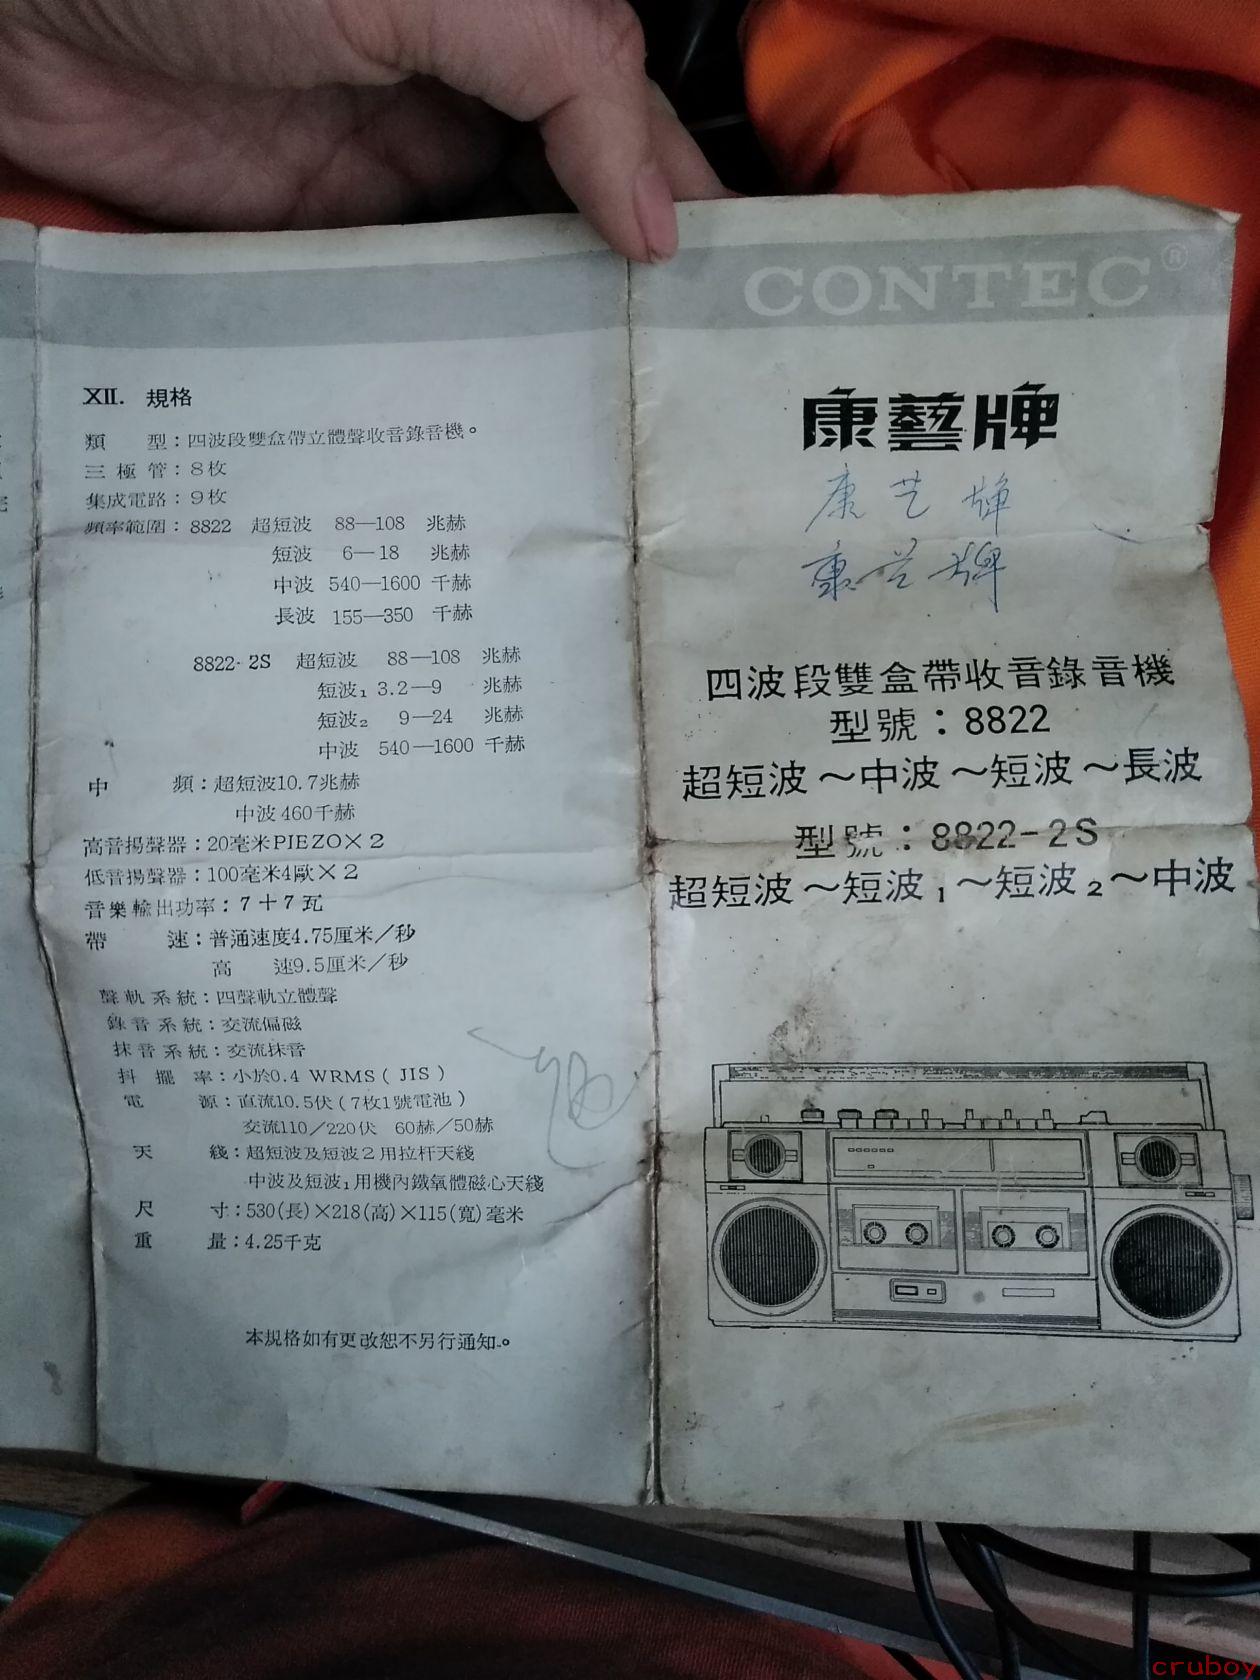 XII. 規格
類 型：四波段雙盒帶立體聲收音錄音機。
三極管：8枚
集成電路：9枚
頻率範圍：8822 超短波 88—108 兆赫
短波 6—18 兆赫
中波 540—1600 千赫
長波 155—350 千赫
8822-2S 超短波 88—108 兆赫
短波₁ 3.2—9 兆赫
短波₂ 9—24 兆赫
中波 540—1600 千赫
中 頻：超短波10.7兆赫
中波460千赫
高音揚聲器：20毫米PIEZO×2
低音揚聲器：100毫米4歐×2
音樂輸出功率：7＋7瓦
帶 速：普通速度4.75厘米／秒
高 速9.5厘米／秒
聲軌系統：四聲軌立體聲
錄音系統：交流偏磁
抹音系統：交流抹音
抖擺率：小於0.4 WRMS（JIS）
電 源：直流10.5伏（7枚1號電池）
交流110／220伏 60赫／50赫
天 綫：超短波及短波2用拉杆天綫
中波及短波₁用機內鐵氧體磁心天綫
尺 寸：530(長)×218(高)×115(寬)毫米
重 量：4.25千克
本規格如有更改恕不另行通知。
CONTEC®
康藝牌
康艺牌
康艺牌
四波段雙盒帶收音錄音機
型號：8822
超短波～中波～短波～長波
型號：8822-2S
超短波～短波₁～短波₂～中波
cruboy